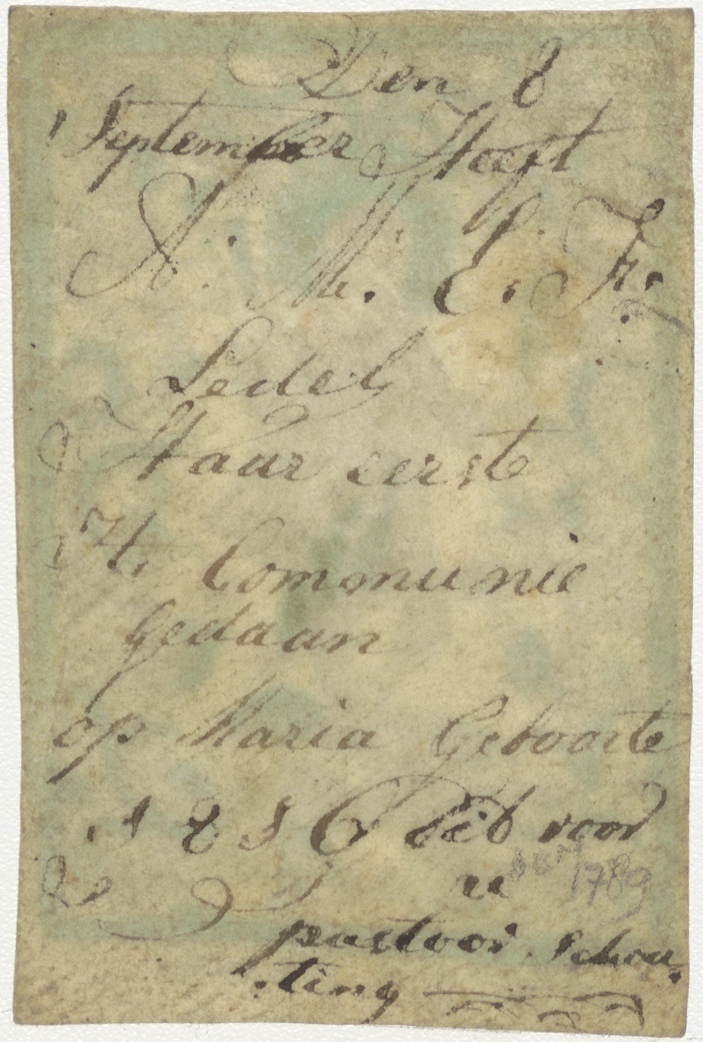 Den 8
September Heeft
A. M. C. Fr.
Ledel
Haar eerste
H. Communie
Gedaan
op Maria Geboorte
1816 bib voor
u
1789
pastoor Schou-
ting